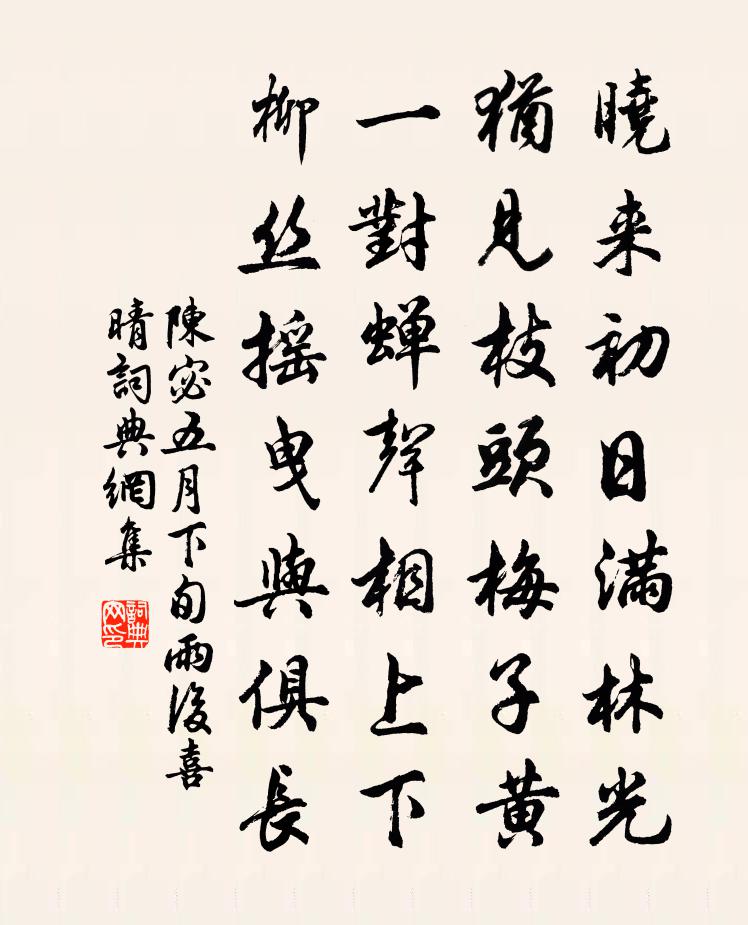 曉来初日满林光
猶見枝頭梅子黄
一對蟬聲相上下
柳丝摇曳與俱長
陳宓五月下旬雨後喜
晴詞典網集
詞典
网印